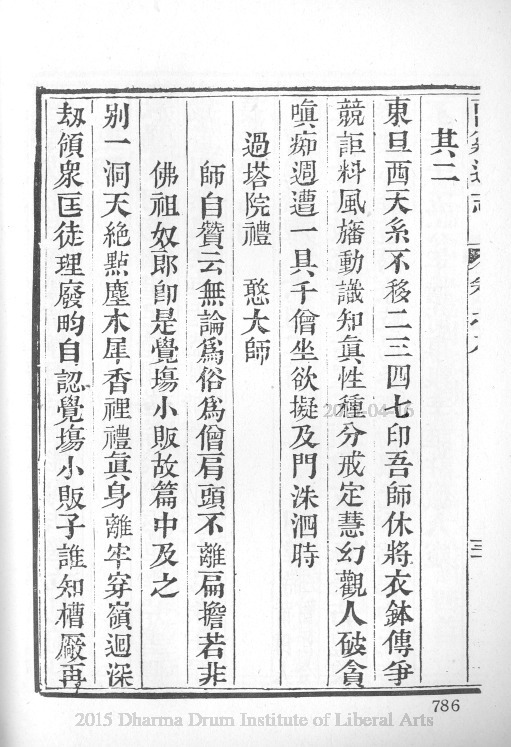 其二
東旦西天系不移二三四七印吾師休將衣鉢傳爭
競詎料風旛動識知眞性種分戒定慧幻觀人破貪
嗔痴週遭一具千僧坐欲擬及門洙泗時
過塔院禮 憨大師
師自贊云無論爲俗爲僧肩頭不離扁擔若非
佛祖奴郎卽是覺塲小販故篇中及之
别一洞天絶點塵木犀香裡禮眞身離牢穿嶺迴深
刼領衆匡徒理廢畇自認覺塲小販子誰知槽厰再
786
2015 Dharma Drum Institute of Liberal Arts